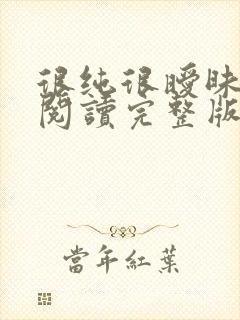 很純很曖昧
閱讀完整版
當年紅葉